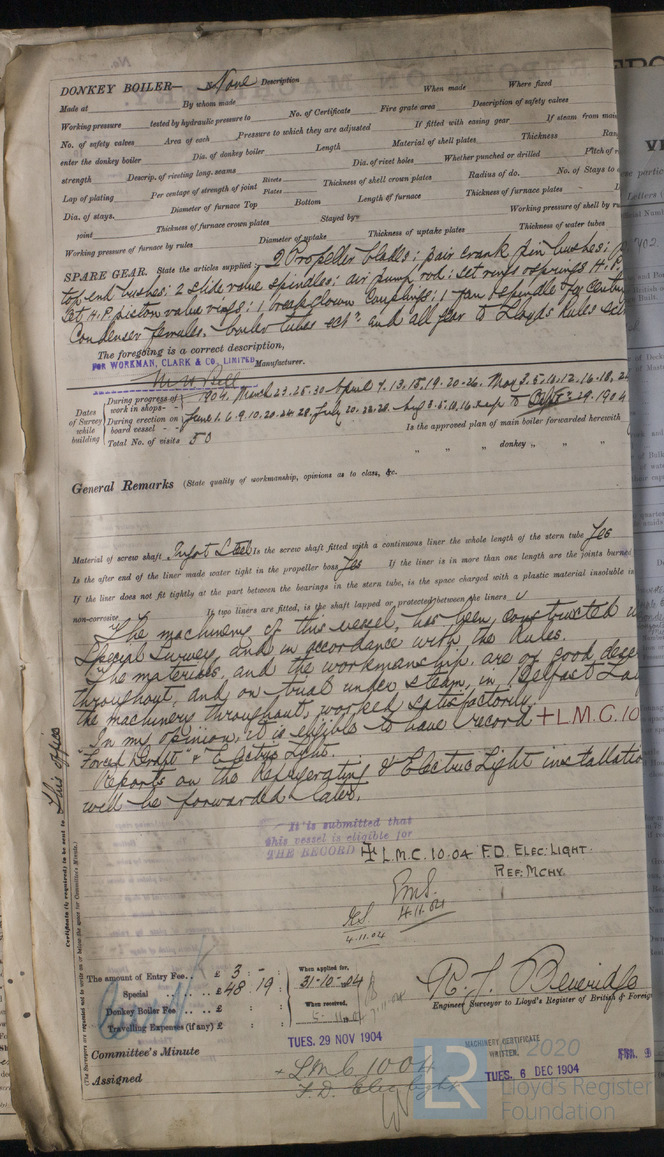 DONKEY BOILER— No. None Description
Made at By whom made When made Where fixed
Working pressure tested by hydraulic pressure to No. of Certificate Fire grate area Description of safety valves
No. of safety valves Area of each Pressure to which they are adjusted If fitted with easing gear If steam from main
enter the donkey boiler Dia. of donkey boiler Length Material of shell plates Thickness
strength Descrip. of riveting long. seams Dia. of rivet holes Whether punched or drilled Pitch of
Lap of plating Per centage of strength of joint Rivets Plates Thickness of shell crown plates Radius of do. No. of Stays to
Dia. of stays. Diameter of furnace Top Bottom Length of furnace Thickness of furnace plates
joint Thickness of furnace crown plates Stayed by Working pressure of shell by
Working pressure of furnace by rules Diameter of uptake Thickness of uptake plates Thickness of water tubes
SPARE GEAR. State the articles supplied:— 2 Propeller blades; pair crank pin bushes;
top end bushes; 2 slide valve spindles; air pump rod; set rings & springs H.P.
Set H.P. piston valve rings; 1 fan spindle
Condenser ferrules. tubes and all gear to Lloyds Rules
The foregoing is a correct description,
FOR WORKMAN, CLARK & CO., LIMITED Manufacturer.
Dates of Survey while building
During progress of work in shops - - 1904. March 23. 25. 30 April 7. 13. 15. 19. 20. 26. May 3. 5. 10. 12. 16. 18.
During erection on board vessel - - - June 1. 6. 9. 10. 20. 24. 28. July 20. 22. 28. Aug 3. 5. 10. 16 to Sept 29. 1904
Total No. of visits 50 Is the approved plan of main boiler forwarded herewith
" " " donkey " " "
General Remarks (State quality of workmanship, opinions as to class, &c.
Material of screw shaft Ingot Steel Is the screw shaft fitted with a continuous liner the whole length of the stern tube Yes
Is the after end of the liner made water tight in the propeller boss Yes If the liner is in more than one length are the joints burned
If the liner does not fit tightly at the part between the bearings in the stern tube, is the space charged with a plastic material insoluble
non-corrosive If two liners are fitted, is the shaft lapped or protected between the liners
The machinery of this vessel, has been constructed
Special Survey, and in accordance with the Rules.
The materials, and the workmanship, are of good
throughout, and on trial under steam, in Belfast
the machinery throughout, worked satisfactorily.
In my opinion, it is eligible to have record + L.M.C. 10
Forced Draft & Electric Light.
Reports on the Refrigerating & Electric Light installation
will be forwarded later.
It is submitted that
this vessel is eligible for
THE RECORD + L.M.C. 10.04 F.D. ELEC: LIGHT.
REF: MCHY.
4.11.04
4.11.04
Certificate (if required) to be sent to This office
(The Surveyors are requested not to write on or below the space for Committee's Minute.)
The amount of Entry Fee. . £ 3 : - :
Special . . £ 48 : 19 :
Donkey Boiler Fee . . £ : :
Travelling Expenses (if any) £ : :
When applied for,
31-10-04
When received,
R. J. Beveridge
Engineer Surveyor to Lloyd's Register of British & Foreign
Committee's Minute TUES. 29 NOV 1904
Assigned + L.M.C 10 04
F.D. Elec light
MACHINERY CERTIFICATE
WRITTEN.
TUES. 6 DEC 1904
LR
© 2020
Lloyd's Register
Foundation